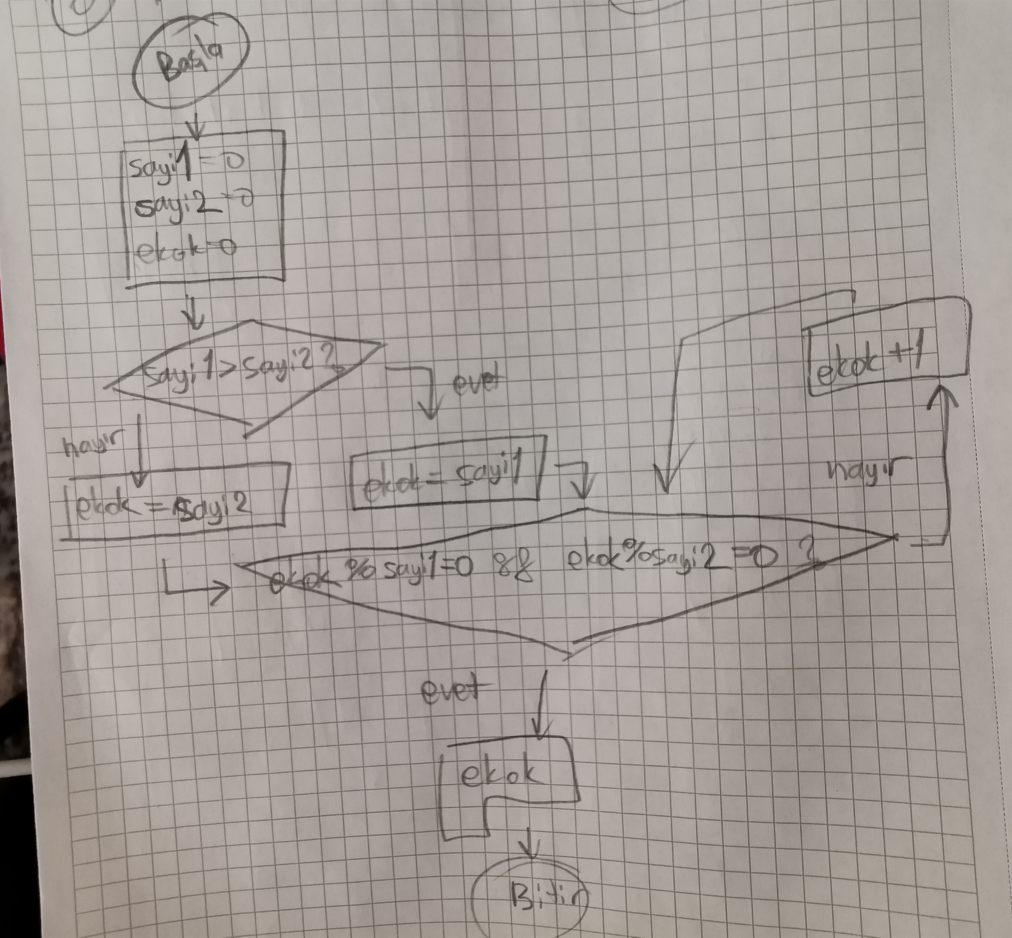 Başla
sayi1=0
sayi2=0
ekok=0
sayi1>sayi2?
evet
hayır
ekok=sayi1
ekok=sayi2
ekok+1
hayır
ekok%sayi1=0 && ekok%sayi2=0 ?
evet
ekok
Bitir